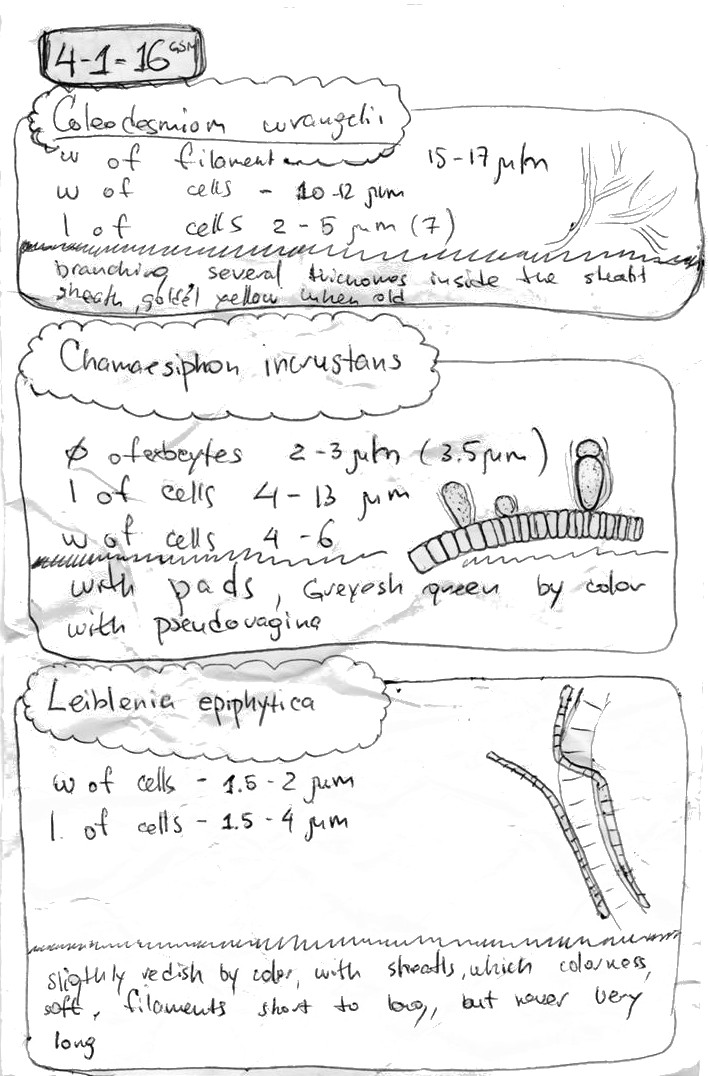 4-1-16 GSM
Coleodesmium wrangelii
w of filament 15-17 μm
w of cells - 10-12 μm
l of cells 2-5 μm (7)
branching, several trichomes inside the sheath
sheath, yellow when old
Chamaesiphon incrustans
φ of exocytes 2-3 μm (3.5 μm)
l of cells 4-13 μm
w of cells 4-6
with pads, Greyesh green by color
with pseudovagina
Leiblenia epiphytica
w of cells - 1.5-2 μm
l. of cells - 1.5-4 μm
slightly redish by color, with sheaths, which
soft, filaments short to long, but never very
long